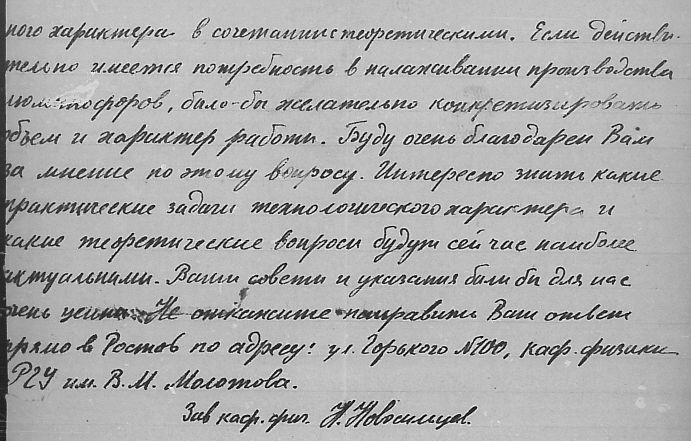 ного характера в сочетании с теоретическими. Если действи-
тельно имеется потребность в налаживании производства
люминофоров, было-бы желательно конкретизировать
объем и характер работы. Буду очень благодарен Вам
за мнение по этому вопросу. Интересно знать какие
практические задачи технологического характера и
какие теоретические вопросы будут сейчас наиболее
актуальными. Ваши советы и указания были бы для нас
очень ценны. Не откажите направить Ваш ответ
прямо в Ростов по адресу: ул. Горького №100, каф. физики
РГУ им. В. М. Молотова.
Зав каф. физ. Н. Новосильцев.